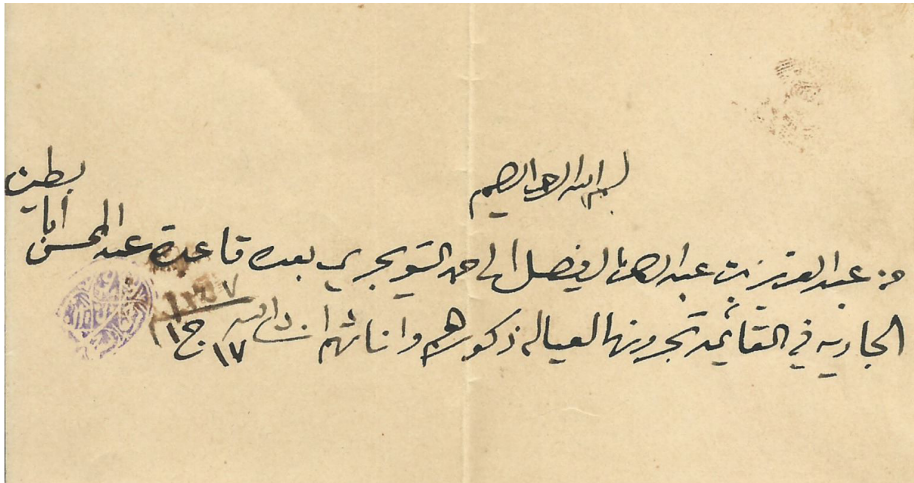 بسم الله الرحمن الرحيم
من عبد العزيز بن عبد الرحمن الفيصل الى حمد التويجري بعده قاعدة عبد المحسن ابا بطين
الجاريه في القائمه تجرونها لعياله ذكورهم واناثهم ١٧ ج